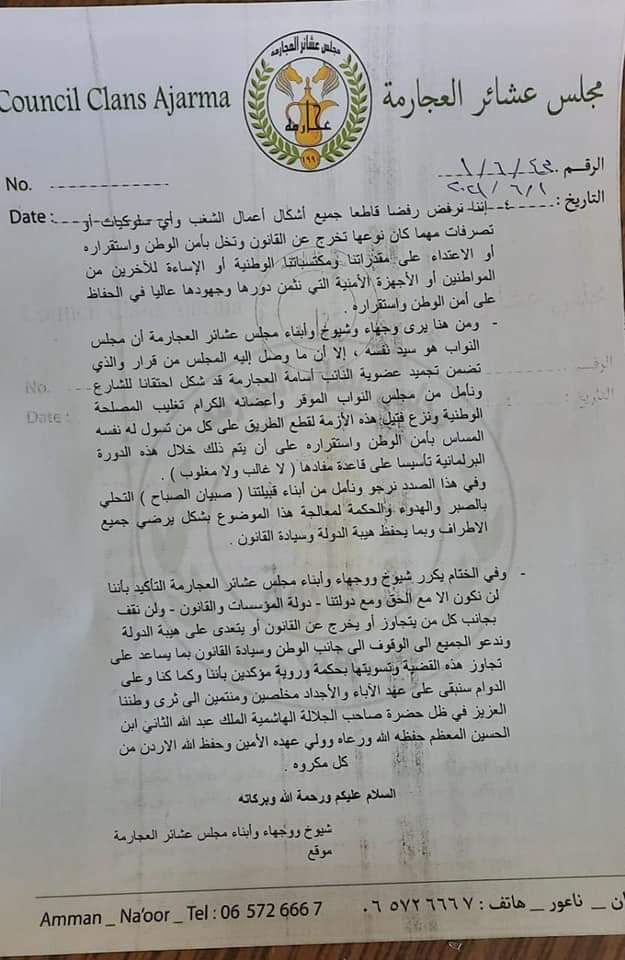 Council Clans Ajarma
مجلس عشائر العجارمة
مجلس عشائر العجارمه
عجارمه
١٩٩
الرقم
No.
التاريخ : ٢٠٢١/٦/١
Date :
٤- إننا نرفض رفضا قاطعا جميع أشكال أعمال الشغب وأي سلوكيات أو
تصرفات مهما كان نوعها تخرج عن القانون وتخل بأمن الوطن واستقراره
أو الاعتداء على مقدراتنا ومكتسباتنا الوطنية أو الإساءة للآخرين من
المواطنين أو الأجهزة الأمنية التي نثمن دورها وجهودها عاليا في الحفاظ
على أمن الوطن واستقراره .
- ومن هنا يرى وجهاء وشيوخ وأبناء مجلس عشائر العجارمة أن مجلس
النواب هو سيد نفسه ، إلا أن ما وصل إليه المجلس من قرار والذي
تضمن تجميد عضوية النائب أسامة العجارمة قد شكل احتقانا للشارع
ونأمل من مجلس النواب الموقر وأعضائه الكرام تغليب المصلحة
الوطنية ونزع فتيل هذه الأزمة لقطع الطريق على كل من تسول له نفسه
المساس بأمن الوطن واستقراره على أن يتم ذلك خلال هذه الدورة
البرلمانية تأسيسا على قاعدة مفادها ( لا غالب ولا مغلوب ) .
وفي هذا الصدد نرجو ونأمل من أبناء قبيلتنا ( صبيان الصباح ) التحلي
بالصبر والهدوء والحكمة لمعالجة هذا الموضوع بشكل يرضي جميع
الاطراف وبما يحفظ هيبة الدولة وسيادة القانون .
- وفي الختام يكرر شيوخ ووجهاء وأبناء مجلس عشائر العجارمة التأكيد بأننا
لن نكون الا مع الحق ومع دولتنا - دولة المؤسسات والقانون - ولن نقف
بجانب كل من يتجاوز أو يخرج عن القانون أو يتعدى على هيبة الدولة
وندعو الجميع الى الوقوف الى جانب الوطن وسيادة القانون بما يساعد على
تجاوز هذه القضية وتسويتها بحكمة وروية مؤكدين بأننا وكما كنا وعلى
الدوام سنبقى على عهد الآباء والأجداد مخلصين ومنتمين الى ثرى وطننا
العزيز في ظل حضرة صاحب الجلالة الهاشمية الملك عبد الله الثاني ابن
الحسين المعظم حفظه الله ورعاه وولي عهده الأمين وحفظ الله الاردن من
كل مكروه .
السلام عليكم ورحمة الله وبركاته
شيوخ ووجهاء وأبناء مجلس عشائر العجارمة
موقع
Amman _ Na'oor _ Tel : 06 572 666 7
ان _ ناعور _ هاتف : ٠٦ ٥٧٢ ٦٦٦ ٧